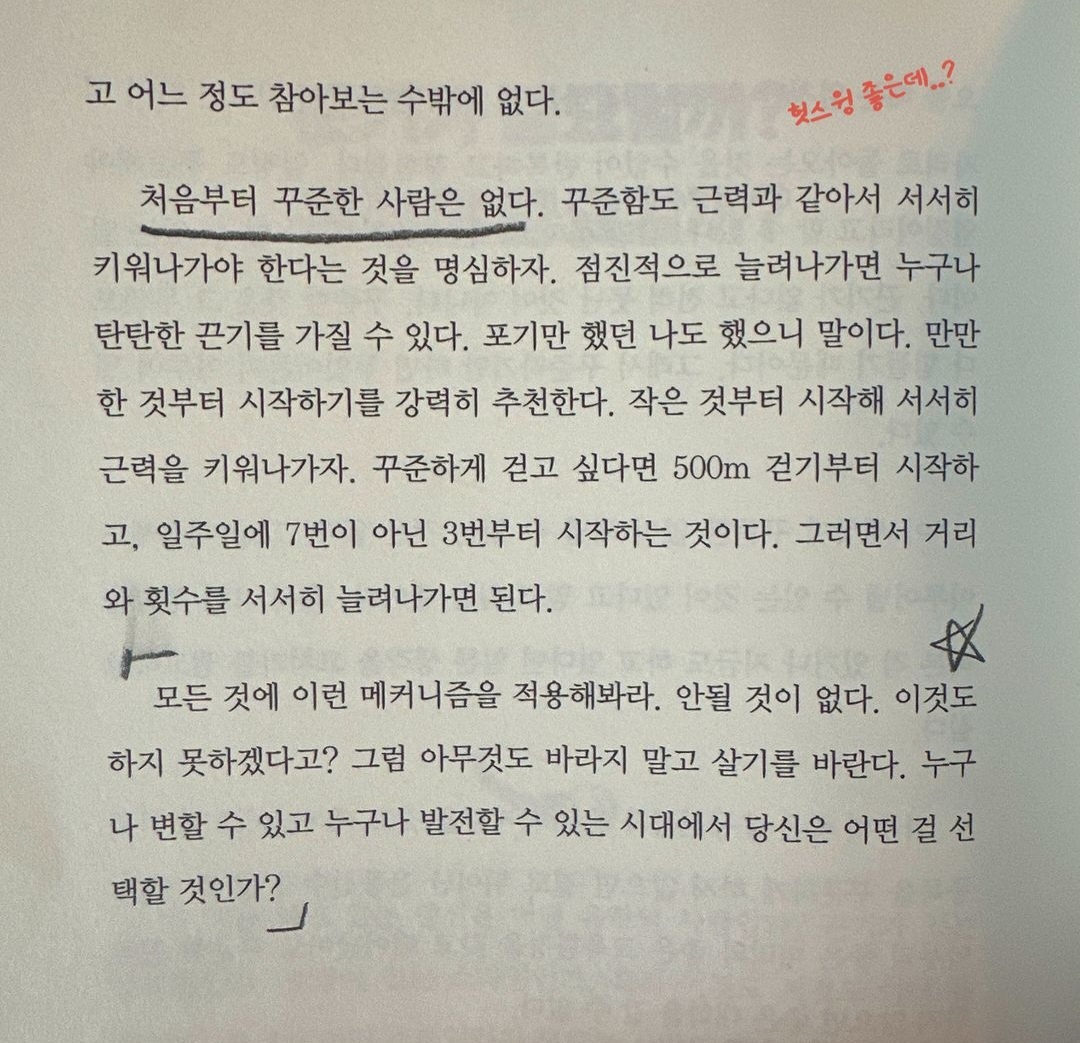 고 어느 정도 참아보는 수밖에 없다.
헛스윙 좋은데..?
처음부터 꾸준한 사람은 없다. 꾸준함도 근력과 같아서 서서히
키워나가야 한다는 것을 명심하자. 점진적으로 늘려나가면 누구나
탄탄한 끈기를 가질 수 있다. 포기만 했던 나도 했으니 말이다. 만만
한 것부터 시작하기를 강력히 추천한다. 작은 것부터 시작해 서서히
근력을 키워나가자. 꾸준하게 걷고 싶다면 500m 걷기부터 시작하
고, 일주일에 7번이 아닌 3번부터 시작하는 것이다. 그러면서 거리
와 횟수를 서서히 늘려나가면 된다.
모든 것에 이런 메커니즘을 적용해봐라. 안될 것이 없다. 이것도
하지 못하겠다고? 그럼 아무것도 바라지 말고 살기를 바란다. 누구
나 변할 수 있고 누구나 발전할 수 있는 시대에서 당신은 어떤 걸 선
택할 것인가?